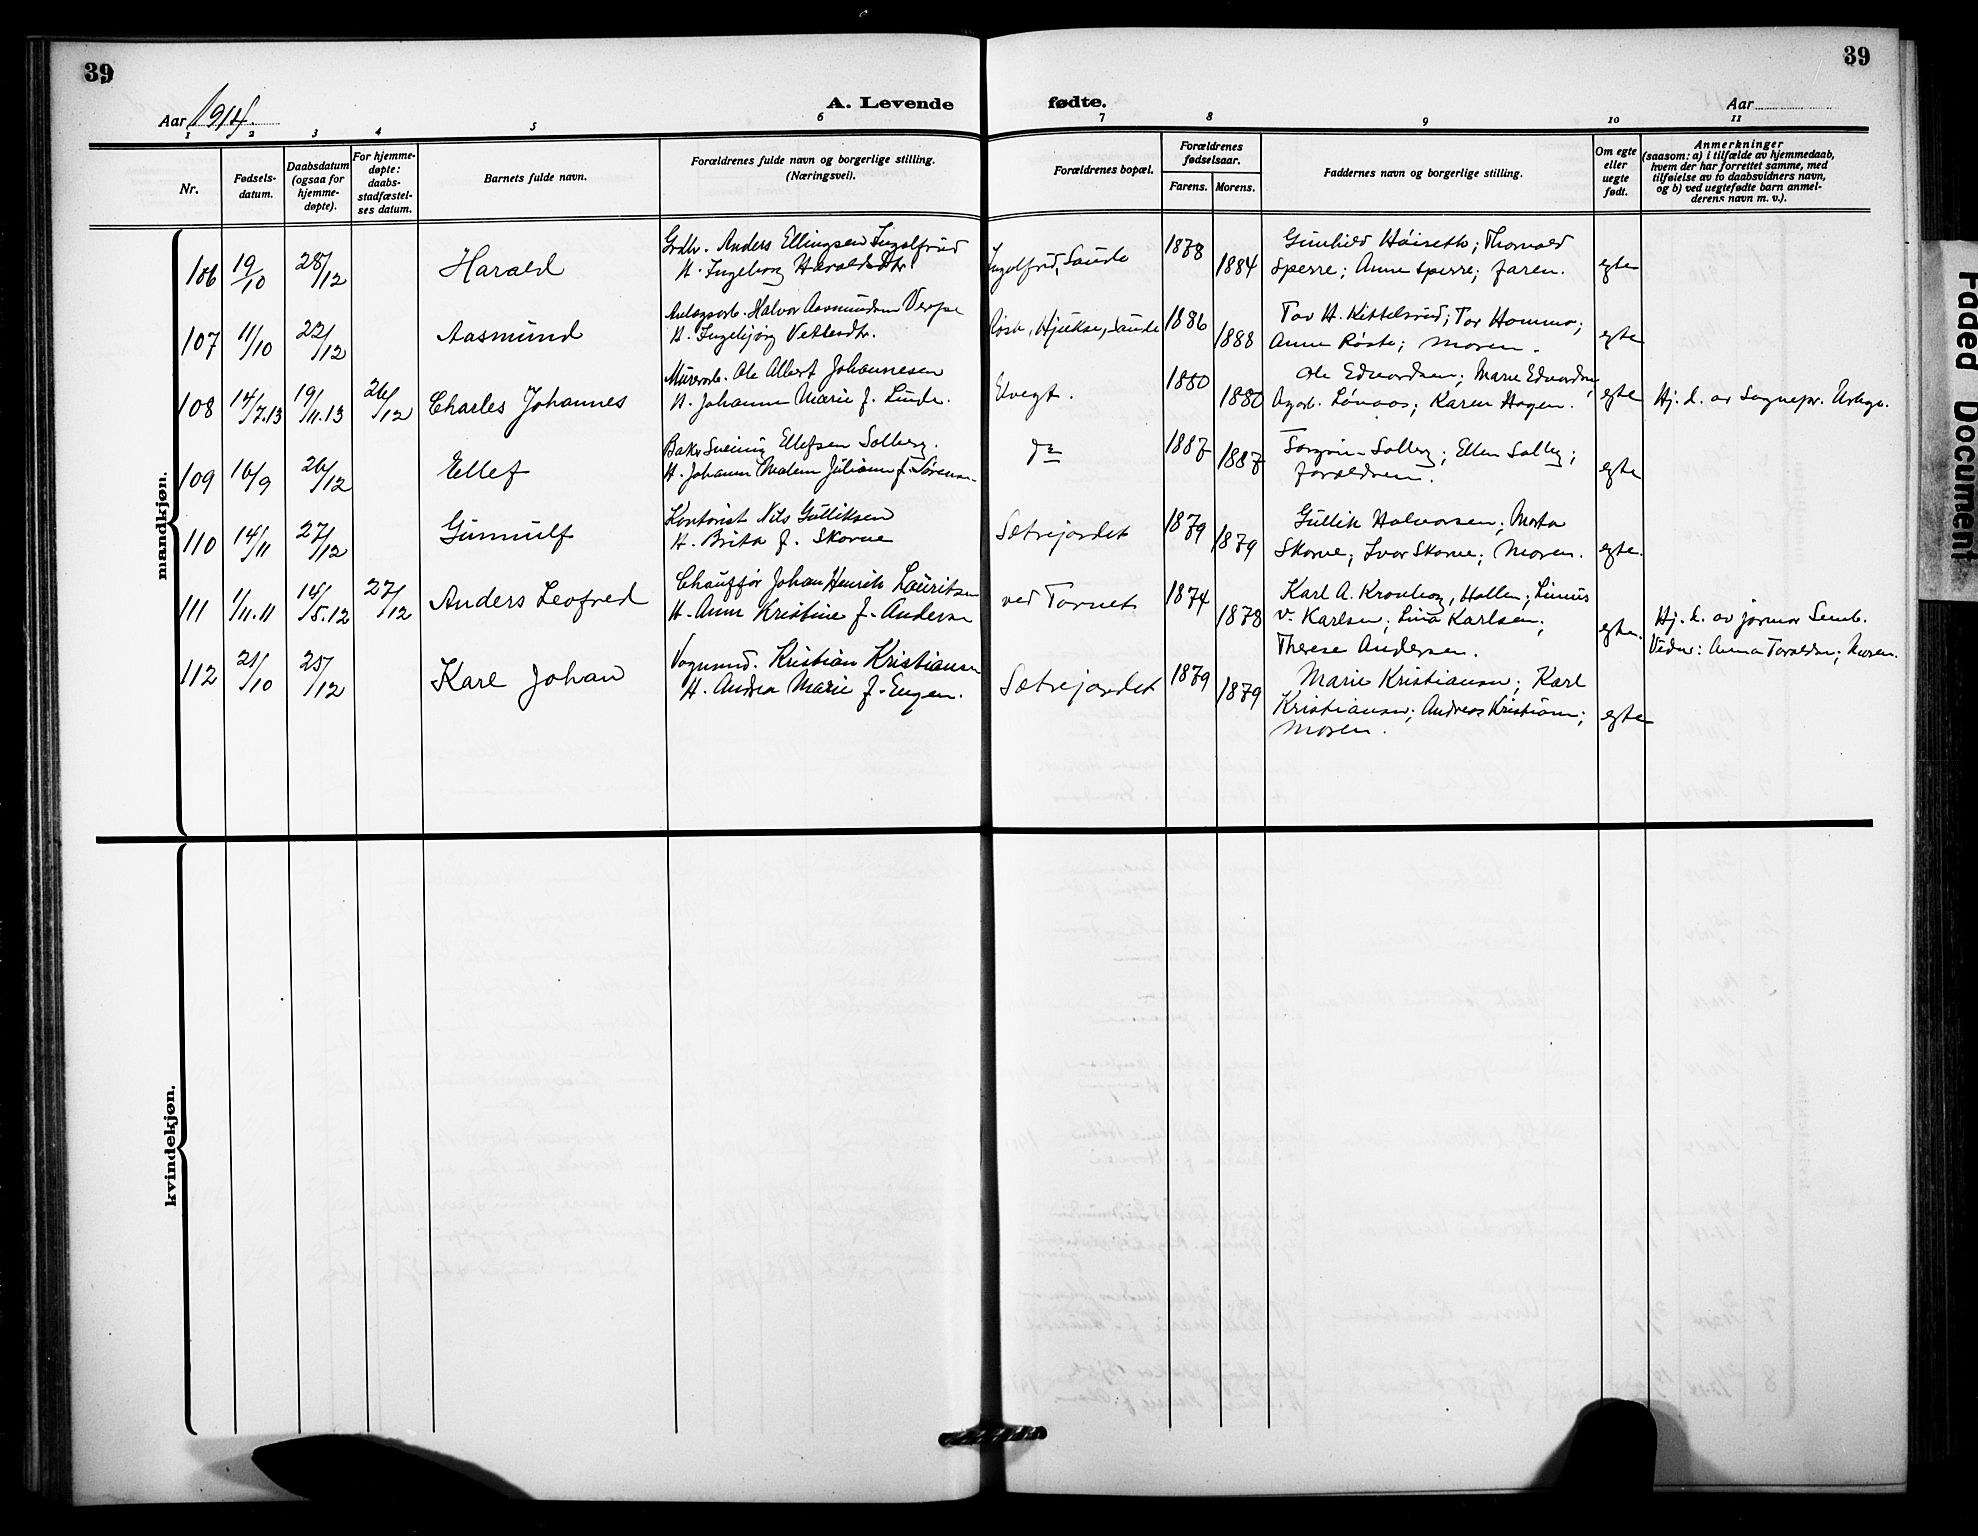 39
39
Aar 1914.
A. Levende fødte.
Aar
1 2 3 4 5 6 7 8 9 10 11
Nr.
Fødsels-
datum.
Daabsdatum
(ogsaa for
hjemme-
døpte).
For hjemme-
døpte:
daabs-
stadfæstel-
ses datum.
Barnets fulde navn.
Forældrenes fulde navn og borgerlige stilling.
(Næringsvei).
Forældrenes bopæl.
Forældrenes
fødselsaar.
Farens. Morens.
Faddernes navn og borgerlige stilling.
Om egte
eller
uegte
født.
Anmerkninger
(saasom: a) i tilfælde av hjemmedaab,
hvem der har forrettet samme, med
tilføielse av to daabsvidners navn,
og b) ved uegtefødte barn anmel-
derens navn m. v.).
mandkjøn.
106 19/10 28/12 Harald
Grdbr. Anders Ellingsen Ingolfrud
H. Ingeborg Haraldsdtr.
Ingolfrud, Saude 1878 1884
Gunhild Høiseth; Thorvald
Sperre; Anne Sperre; faren.
egte
107 11/10 22/12 Aasmund
Anlægsarb. Halvor Aasmundsen Verpe
H. Ingebjørg Vetlesdtr.
Hjuksa, Saude 1886 1888
Tov H. Kittelsrud; Tor Hommo;
Anne Røste; Moren.
egte
108 14/7.13 19/11.13 26/12 Charles Johannes
Murerarb. Ole Albert Johannesen
H. Johanne Marie f. Linde.
Elvegt. 1880 1880
Ole Edvardsen; Marie Edvardsen,
Lønaas; Karen Hagen.
egte
Hj. d. av Sognepr.
109 16/9 26/12 Ellef
Baker Sveinung Ellefsen Solberg.
H. Johanne Malene Juliane f. Sørensen
do 1887 1887
Solberg; Ellen Solberg;
forældrene.
egte
110 14/11 27/12 Gunnulf
Kontorist Nils Gulliksen
H. Brita f. Skorve
Sætrejordet 1879 1879
Gullik Halvorsen; Marta
Skorve; Ivar Skorve; Moren.
egte.
111 1/11.11 14/5.12 27/12 Anders Leofred
Chauffør Johan Henrik Lauritsen
H. Anne Kristine f. Andersen
ved Tornet 1874 1878
Karl A. Kronborg, Hollen; Linus
v. Karlsen; Lina Karlsen;
Therese Andersen.
egte.
Hj. d. av jormor Semb.
Vidner: Anna Toraldsen; Moren.
112 21/10 25/12 Karl Johan
Vognmd. Kristian Kristiansen
H. Andrea Marie f. Engen.
Sætrejordet 1879 1879
Marie Kristiansen; Karl
Kristiansen; Andreas Kristiansen;
Moren.
egte
kvindekjøn.
Faded Document